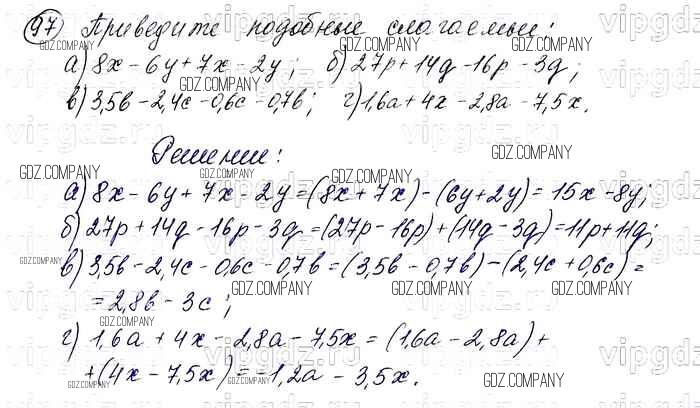 97 Приведите подобные слагаемые:
а) 8x - 6y + 7x - 2y; б) 27p + 14q - 16p - 3q;
в) 3,5b - 2,4c - 0,6c - 0,7b; г) 1,6a + 4x - 2,8a - 7,5x.
Решение:
а) 8x - 6y + 7x - 2y = (8x + 7x) - (6y + 2y) = 15x - 8y;
б) 27p + 14q - 16p - 3q = (27p - 16p) + (14q - 3q) = 11p + 11q;
в) 3,5b - 2,4c - 0,6c - 0,7b = (3,5b - 0,7b) - (2,4c + 0,6c) =
= 2,8b - 3c;
г) 1,6a + 4x - 2,8a - 7,5x = (1,6a - 2,8a) +
+ (4x - 7,5x) = -1,2a - 3,5x.
GDZ.COMPANY
vipgdz.ru